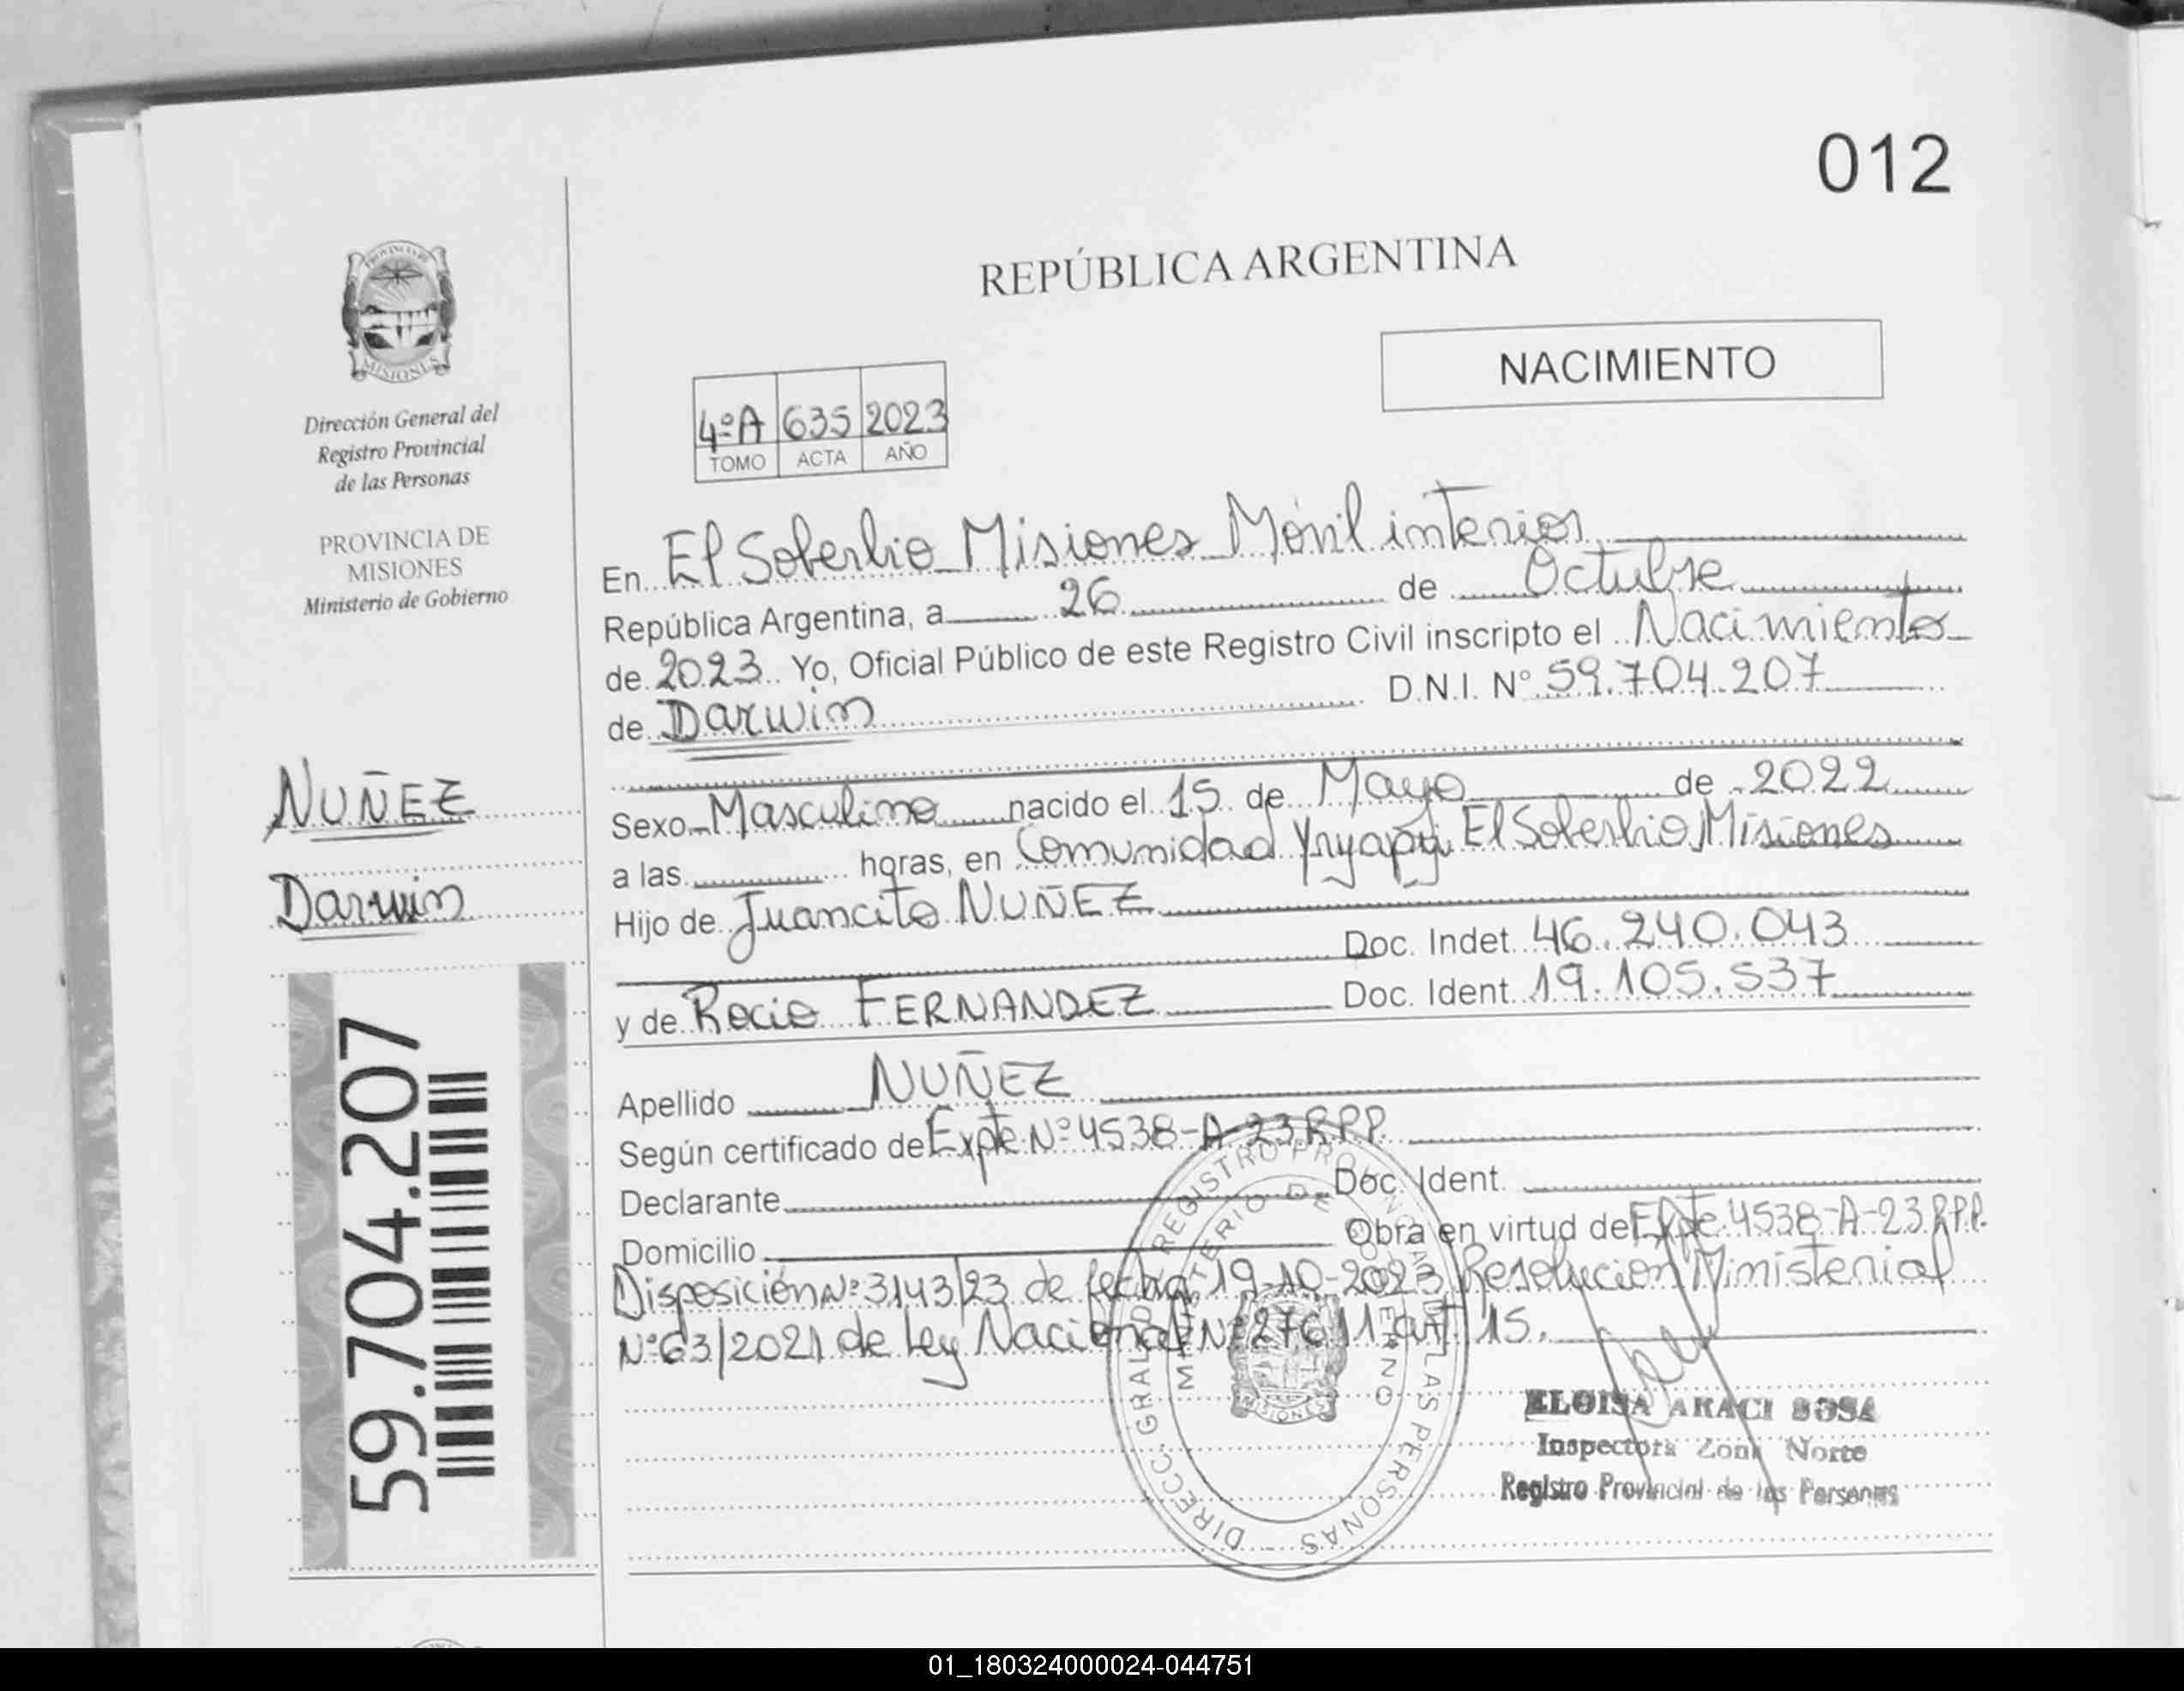 012
REPÚBLICA ARGENTINA
NACIMIENTO
PROVINCIA DE
MISIONES
Dirección General del
Registro Provincial
de las Personas
PROVINCIA DE
MISIONES
Ministerio de Gobierno
4ºA 635 2023
TOMO ACTA AÑO
En El Soberbio Misiones Móvil interior
República Argentina, a 26 de Octubre
de 2023 Yo, Oficial Público de este Registro Civil inscripto el Nacimiento
de Darwin D.N.I. Nº 59.704.207
NUÑEZ
Darwin
Sexo Masculino nacido el 15 de Mayo de 2022
a las horas, en Comunidad Yryapy El Soberbio Misiones
Hijo de Juancito NUÑEZ
Doc. Indet. 46.240.043
y de Rocio FERNANDEZ Doc. Ident. 19.105.537
59.704.207
Apellido NUÑEZ
Según certificado de Expte Nº 4538-A-23 RPP
Declarante Doc. Ident.
Domicilio Obra en virtud de Expte 4538-A-23 R.P.P.
Disposición Nº 3143/23 de fecha 19-10-2023 Resolucion Ministerial
Nº 63/2021 de Ley Nacional Nº 27611 art. 15.
DIRECC. GRAL. DEL REGISTRO PROVINCIAL DE LAS PERSONAS
MINISTERIO DE GOBIERNO
MISIONES
ELOISA ARACI SOSA
Inspectora Zona Norte
Registro Provincial de las Personas
01_180324000024-044751